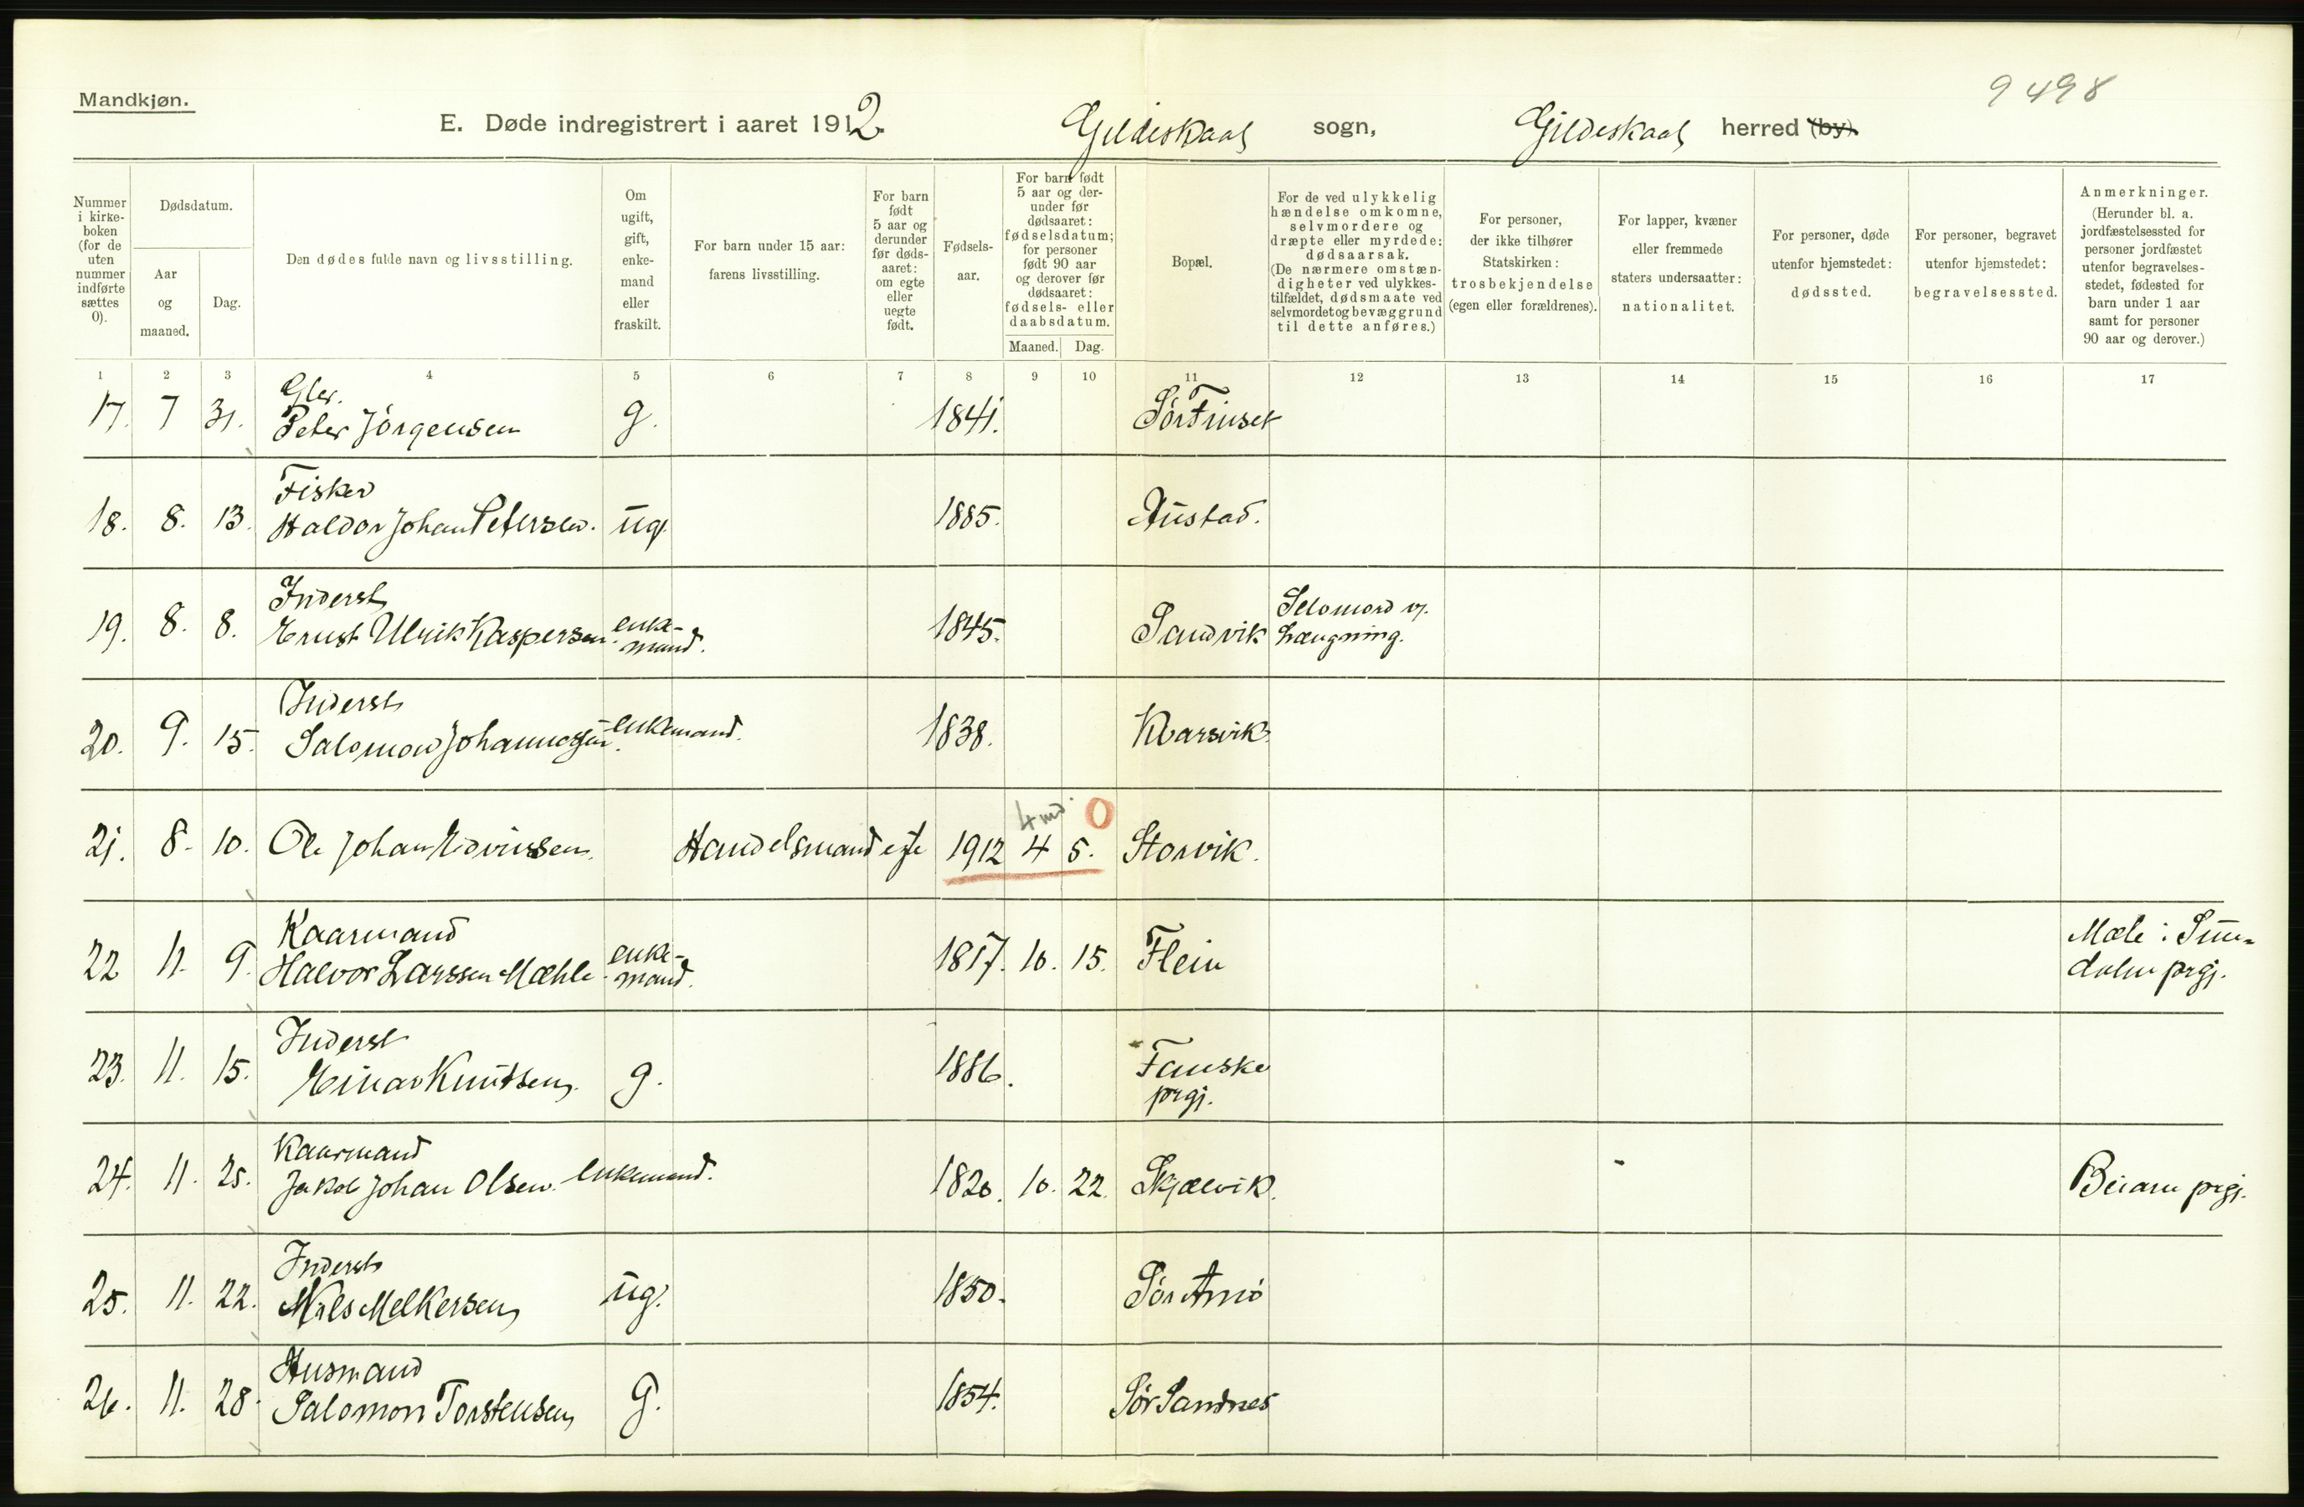 9498
Mandkjøn.
E. Døde indregistrert i aaret 1912. Gildeskaal sogn, Gildeskaal herred (by).
Nummer i kirke-boken (for de uten nummer indførte sættes 0).
Dødsdatum.
Aar og maaned.
Dag.
Den dødes fulde navn og livsstilling.
Om ugift, gift, enke-mand eller fraskilt.
For barn under 15 aar: farens livsstilling.
For barn født 5 aar og derunder før døds-aaret: om egte eller uegte født.
Fødsels-aar.
For barn født 5 aar og der-under før dødsaaret: fødselsdatum; for personer født 90 aar og derover før dødsaaret: fødsels- eller daabsdatum.
Maaned. Dag.
Bopæl.
For de ved ulykkelig hændelse omkomne, selvmordere og dræpte eller myrdede: dødsaarsak. (De nærmere omstæn-digheter ved ulykkes-tilfældet, dødsmaate ved selvmordet og bevæggrund til dette anføres.)
For personer, der ikke tilhører Statskirken: trosbekjendelse (egen eller forældrenes).
For lapper, kvæner eller fremmede staters undersaatter: nationalitet.
For personer, døde utenfor hjemstedet: dødssted.
For personer, begravet utenfor hjemstedet: begravelsessted.
Anmerkninger. (Herunder bl. a. jordfæstelsessted for personer jordfæstet utenfor begravelses-stedet, fødested for barn under 1 aar samt for personer 90 aar og derover.)
1 2 3 4 5 6 7 8 9 10 11 12 13 14 15 16 17
Gbr.
17. 7 31. Peter Jørgensen g. 1841. Sør Finset
Fisker
18. 8. 13. Haldor Johan Petersen. ug. 1885. Austad.
Inderst
19. 8. 8. Ernst Ulrik Kaspersen enke-mand. 1845. Sandvik Selvmord v. hængning.
Inderst
20. 9. 15. Salomon Johannessen. enkemand. 1838. Kvarsvik
4 md. 0
21. 8. 10. Ole Johan Edvinssen. Handelsmand egte 1912 4 5. Storvik.
Kaarmand
22 11. 9. Halvor Larssen Mæhle enke-mand. 1817. 10. 15. Flein Mæle i Sun-dalen prgj.
Inderst
23. 11. 15. Einar Knutsen. g. 1886. Fauske prgj.
Kaarmand
24. 11. 25. Jakob Johan Olsen. enkemand. 1820. 10. 22. Skjælvik. Beiarn prgj.
Inderst
25. 11. 22. Nils Melkersen ug. 1850. Sør Arnø
Husmand
26. 11. 28. Salomon Torstensen g. 1854. Sør Sandnes